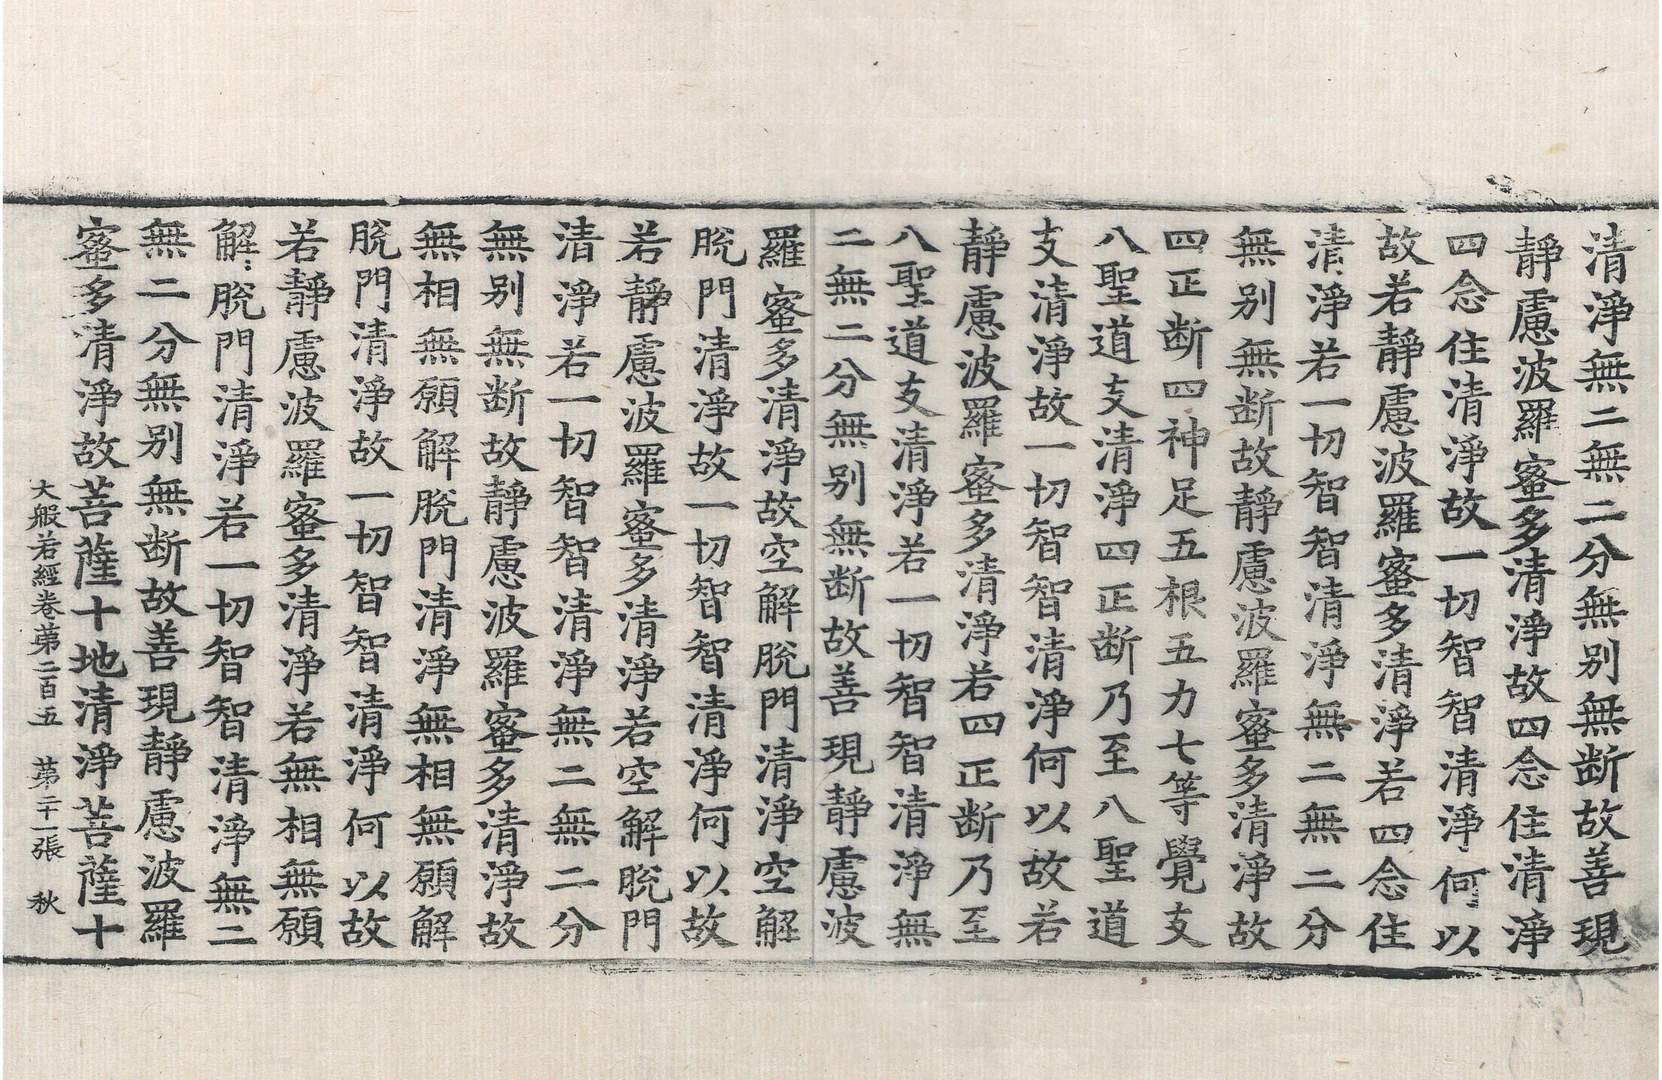 清淨無二無二分無別無断故善現
靜慮波羅蜜多清淨故四念住清淨
四念住清淨故一切智智清淨何以
故若靜慮波羅蜜多清淨若四念住
清淨若一切智智清淨無二無二分
無別無断故靜慮波羅蜜多清淨故
四正断四神足五根五力七等覺支
八聖道支清淨四正断乃至八聖道
支清淨故一切智智清淨何以故若
靜慮波羅蜜多清淨若四正断乃至
八聖道支清淨若一切智智清淨無
二無二分無別無断故善現靜慮波
羅蜜多清淨故空解脫門清淨空解
脫門清淨故一切智智清淨何以故
若靜慮波羅蜜多清淨若空解脫門
清淨若一切智智清淨無二無二分
無別無断故靜慮波羅蜜多清淨故
無相無願解脫門清淨無相無願解
脫門清淨故一切智智清淨何以故
若靜慮波羅蜜多清淨若無相無願
解脫門清淨若一切智智清淨無二
無二分無別無断故善現靜慮波羅
蜜多清淨故菩薩十地清淨菩薩十
大般若經卷第二百五 第二十一張 秋